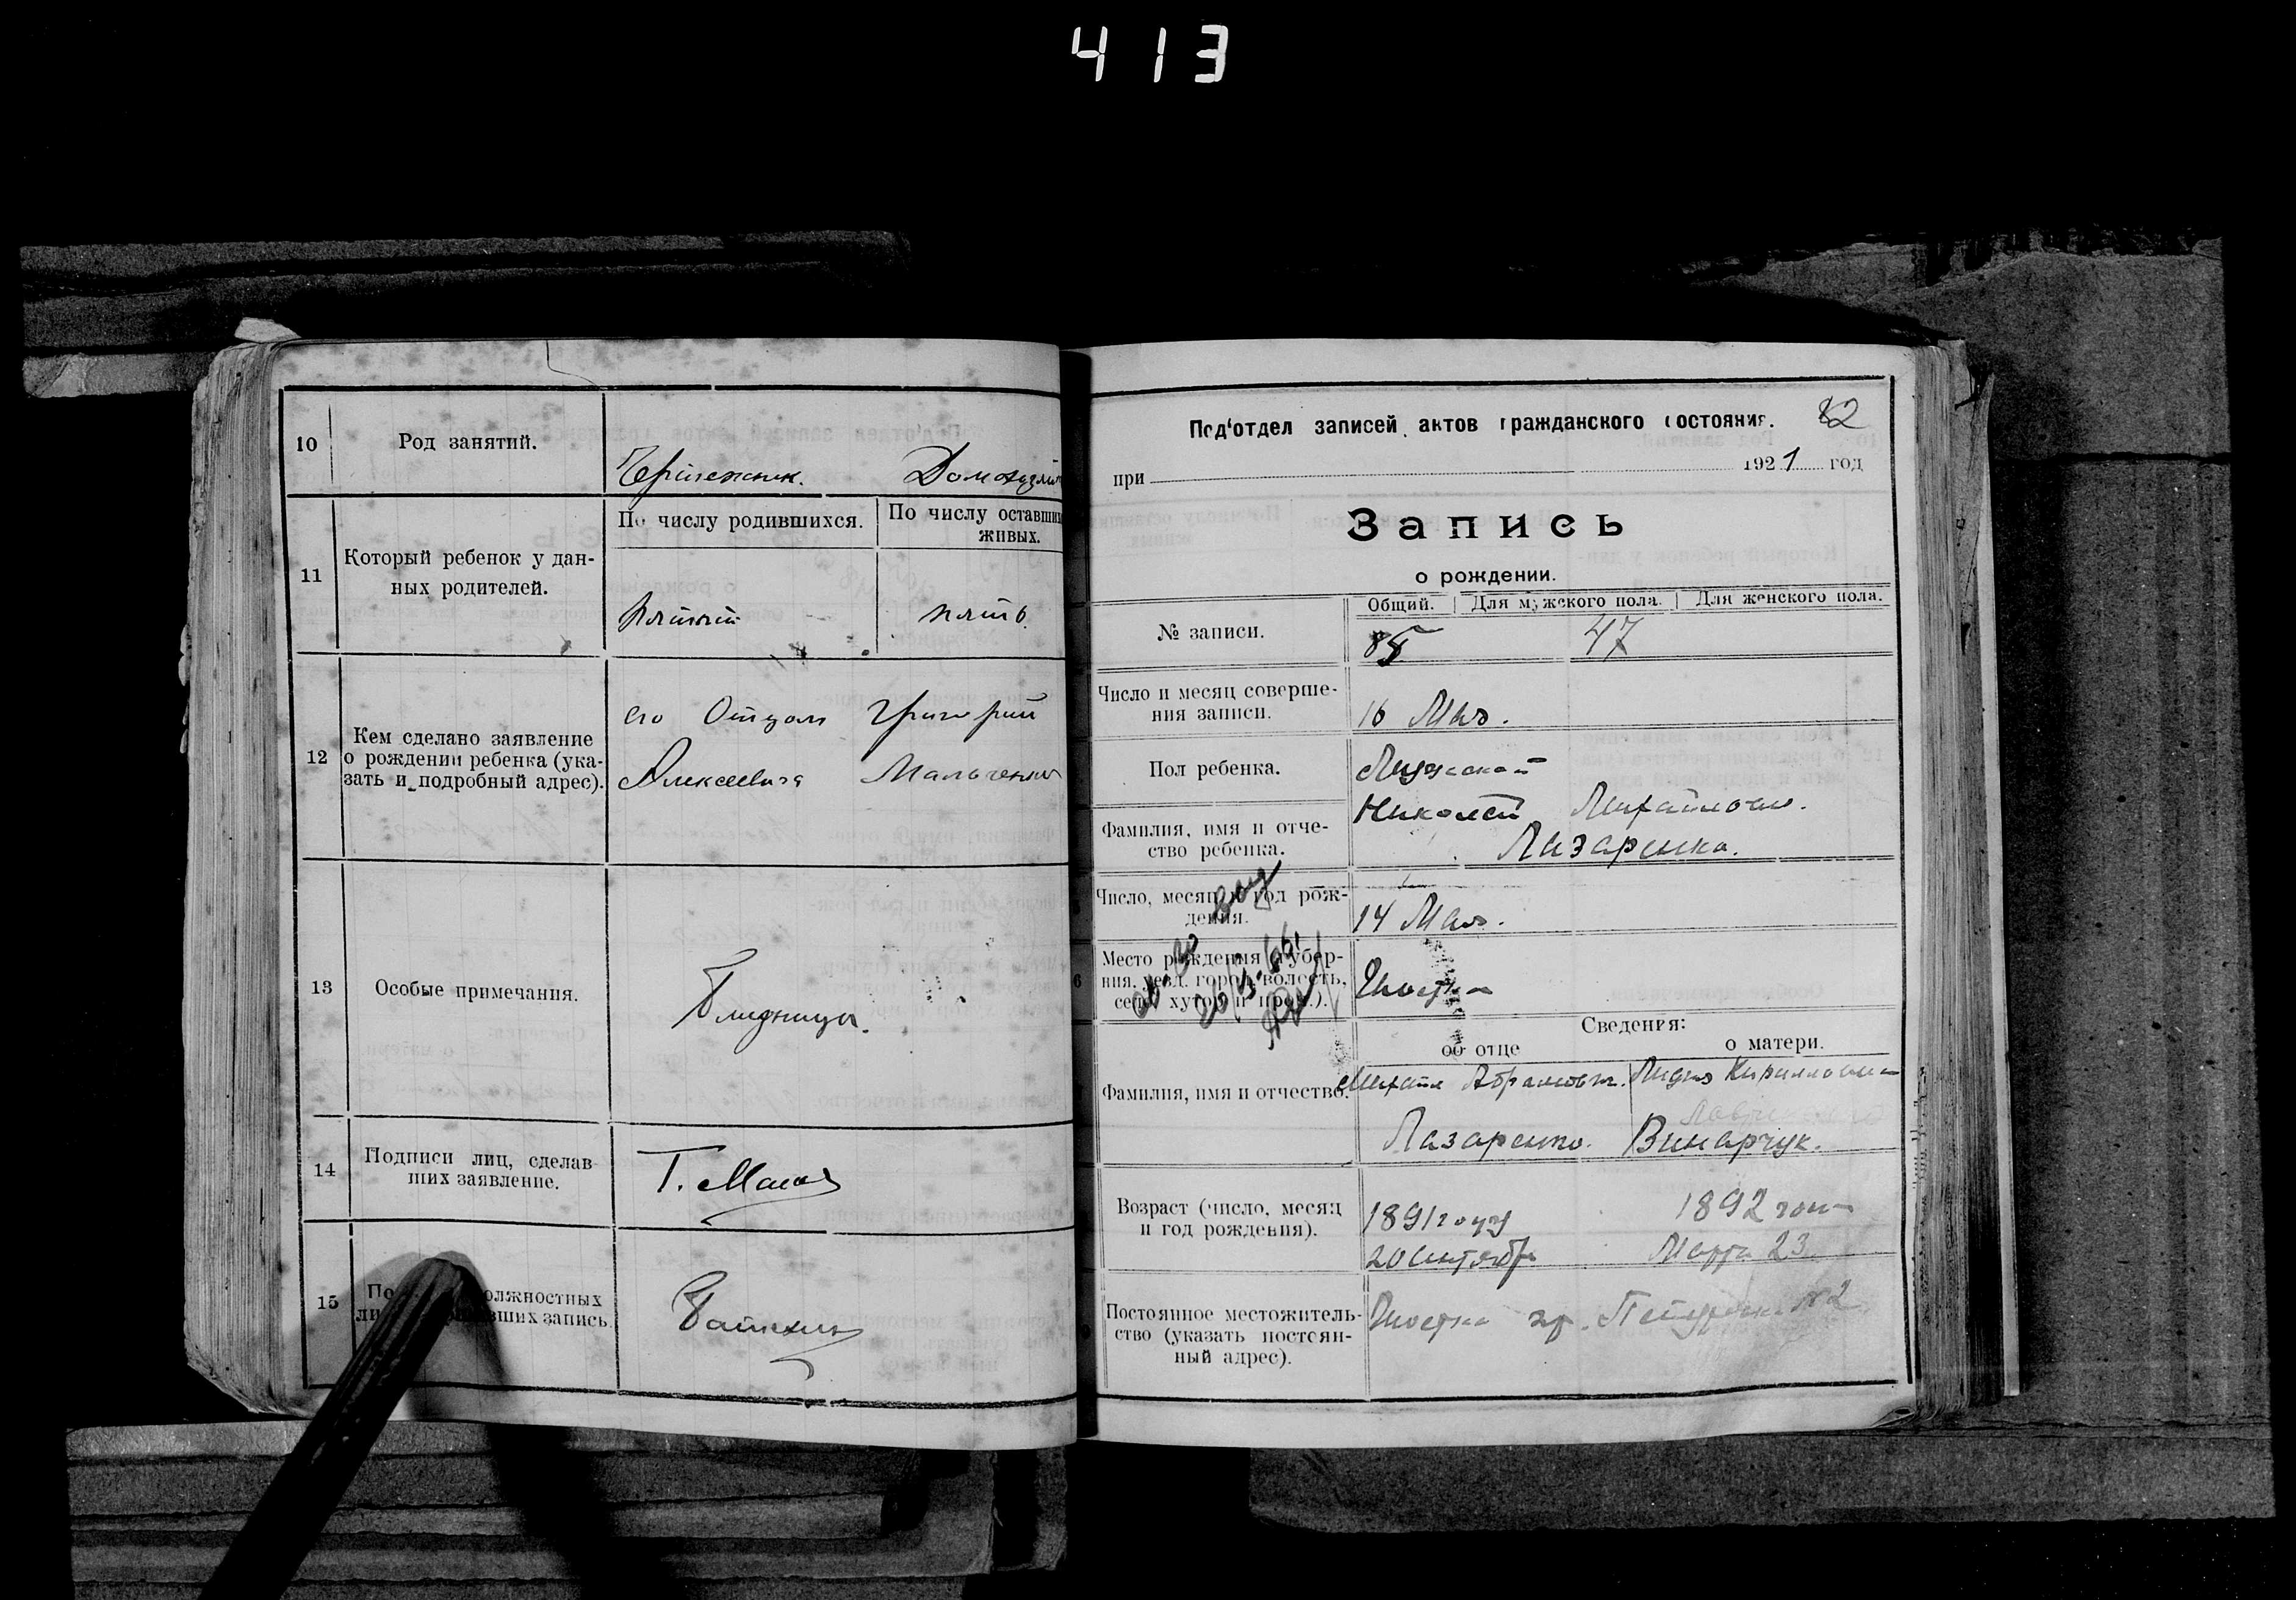 413
10 Род занятий. Чертежник. Домохозяй
11 Который ребенок у дан-
ных родителей.
По числу родившихся. По числу оставши
живых.
пятый пять.
12 Кем сделано заявление
о рождении ребенка (ука-
зать и подробный адрес).
его Отцом Григорий
Алексеевича
13 Особые примечания.
Близнецы.
14 Подписи лиц, сделав-
ших заявление.
15
олжностных
вших запись.
Под'отдел записей актов гражданского состояния. 82
при 1921 год
Запись
о рождении.
№ записи. Общий. Для мужского пола. Для женского пола.
47
Число и месяц соверше-
ния записи.
16 Мая.
Пол ребенка. Мужской
Фамилия, имя и отче-
ство ребенка.
Николай Михайлович.
Лазаренко.
Число, месяц и год рож-
дения.
14 Мая.
Место рождения (губер-
ния, уезд, город, волость,
село, хутор и проч.).
Шостка
Сведения:
об отце о матери.
Фамилия, имя и отчество.
Михаил Абрамович. Лидия Кирилловна
Лазаренко. Винарчук.
Возраст (число, месяц
и год рождения).
1891 году 1892 года
20 сентября Марта 23
Постоянное местожитель-
ство (указать постоян-
ный адрес).
Шостка №2